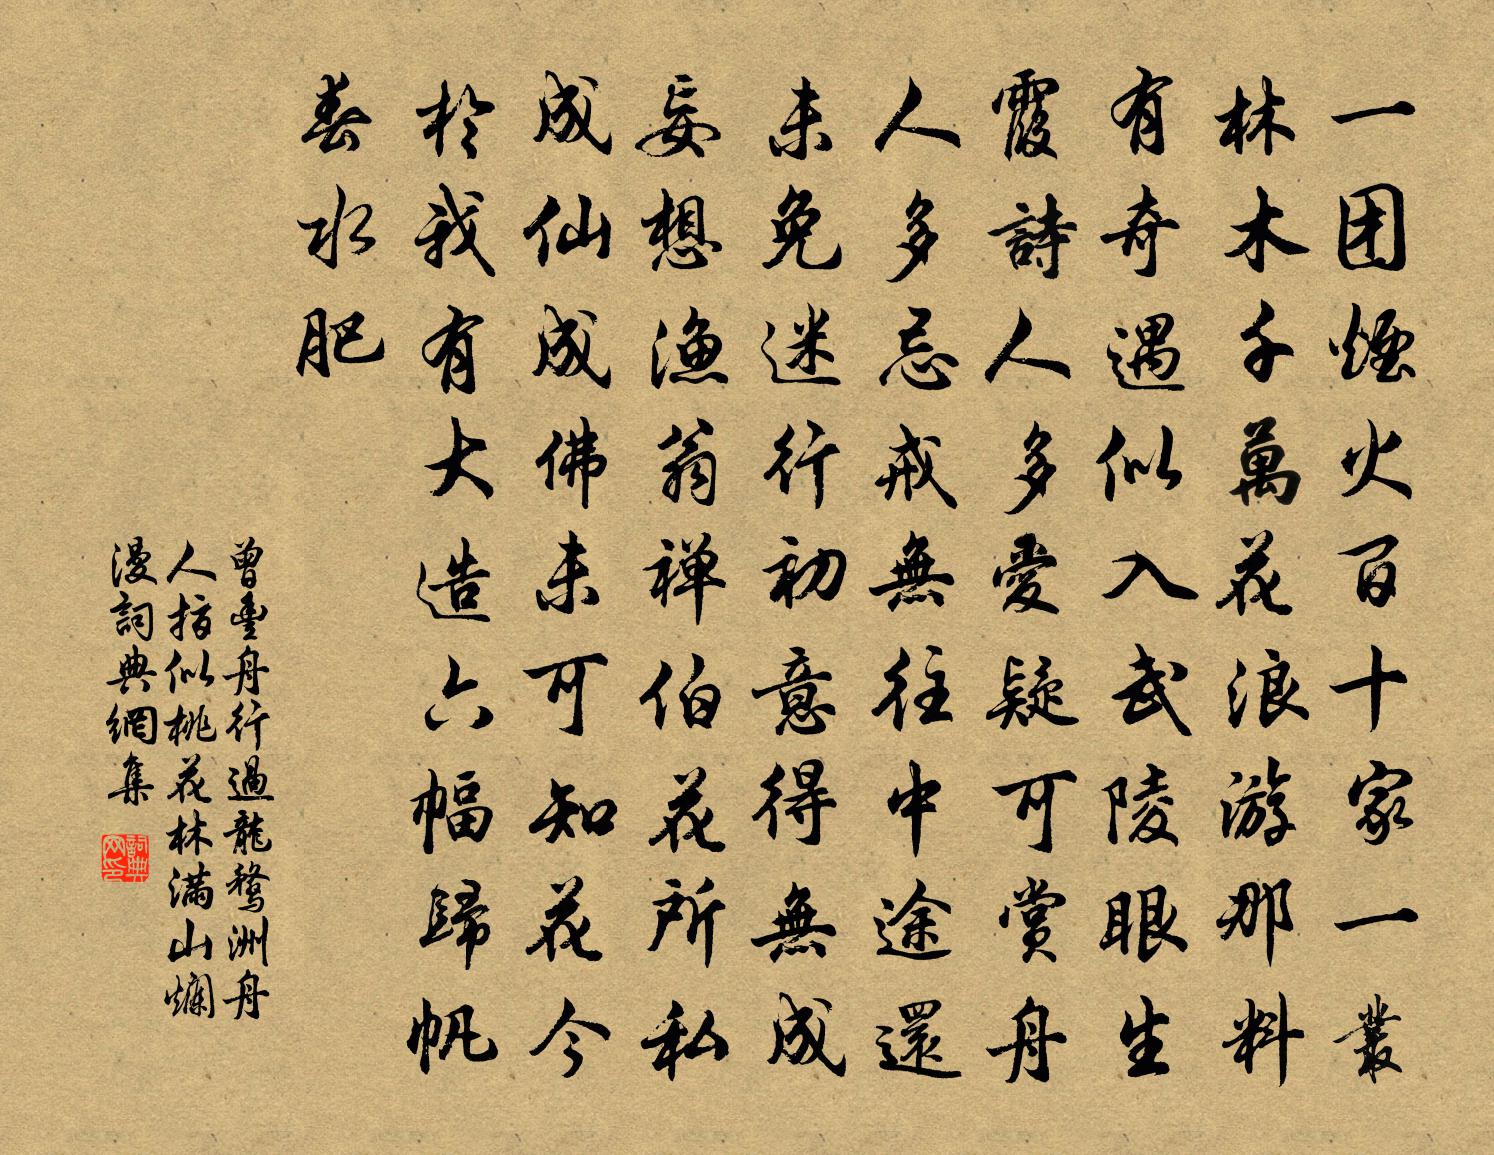 一团煙火百十家一叢
林木千萬花浪游那料
有奇遇似入武陵眼生
霞詩人多愛疑可賞舟
人多忌戒無往中途還
未免迷行初意得無成
妄想漁翁禅伯花所私
成仙成佛未可知花今
於我有大造六幅歸帆
春水肥
曾豐舟行過龍鶩洲舟
人指似桃花林满山爛
漫詞典網集
詞典网印